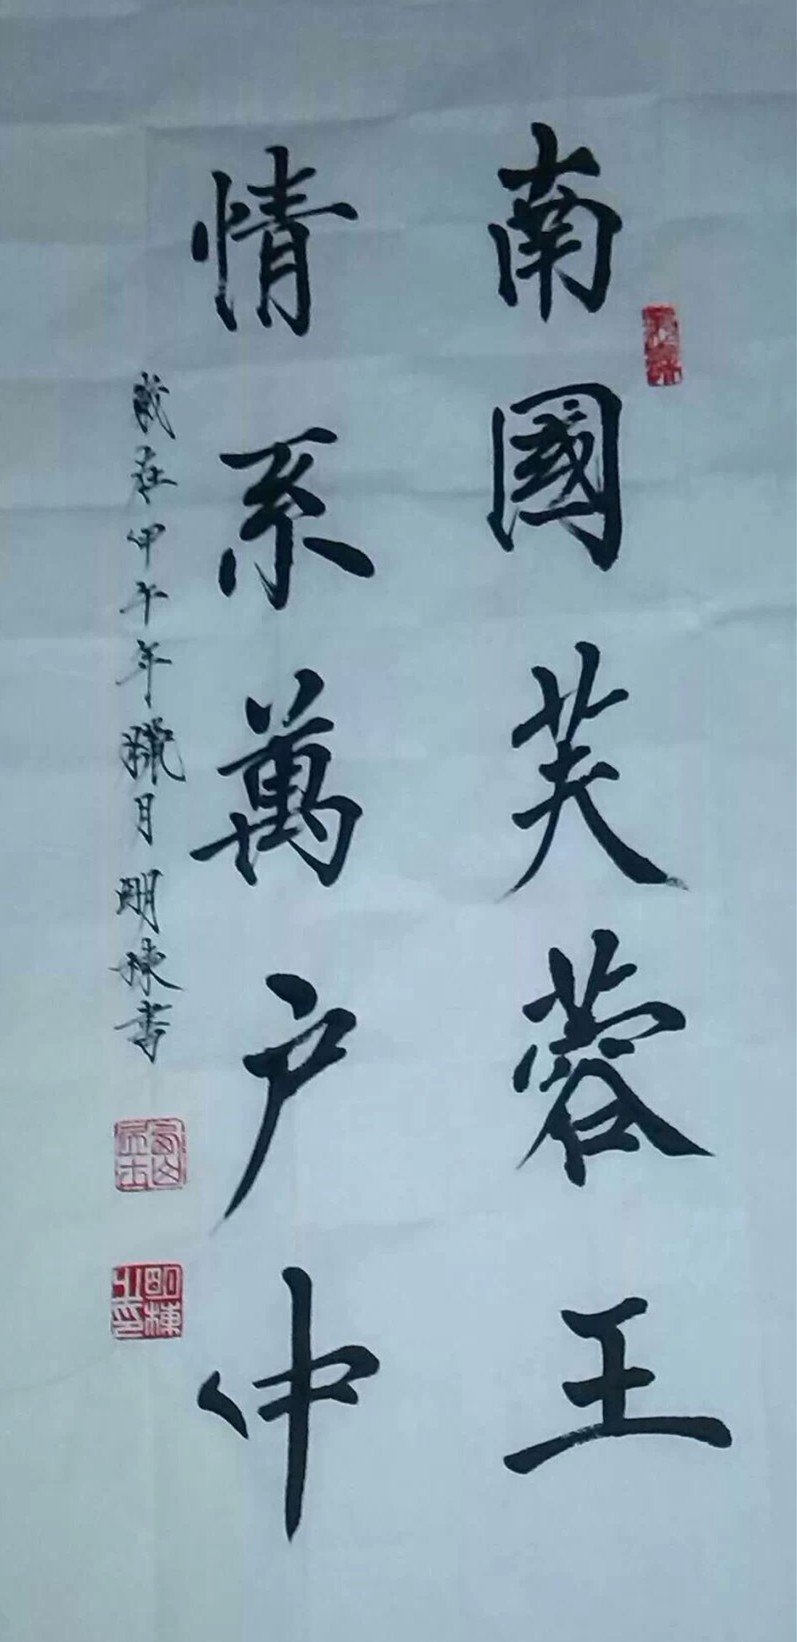 南國芙蓉王
情系萬户中
歲在甲午年臘月明棟書
明棟之印